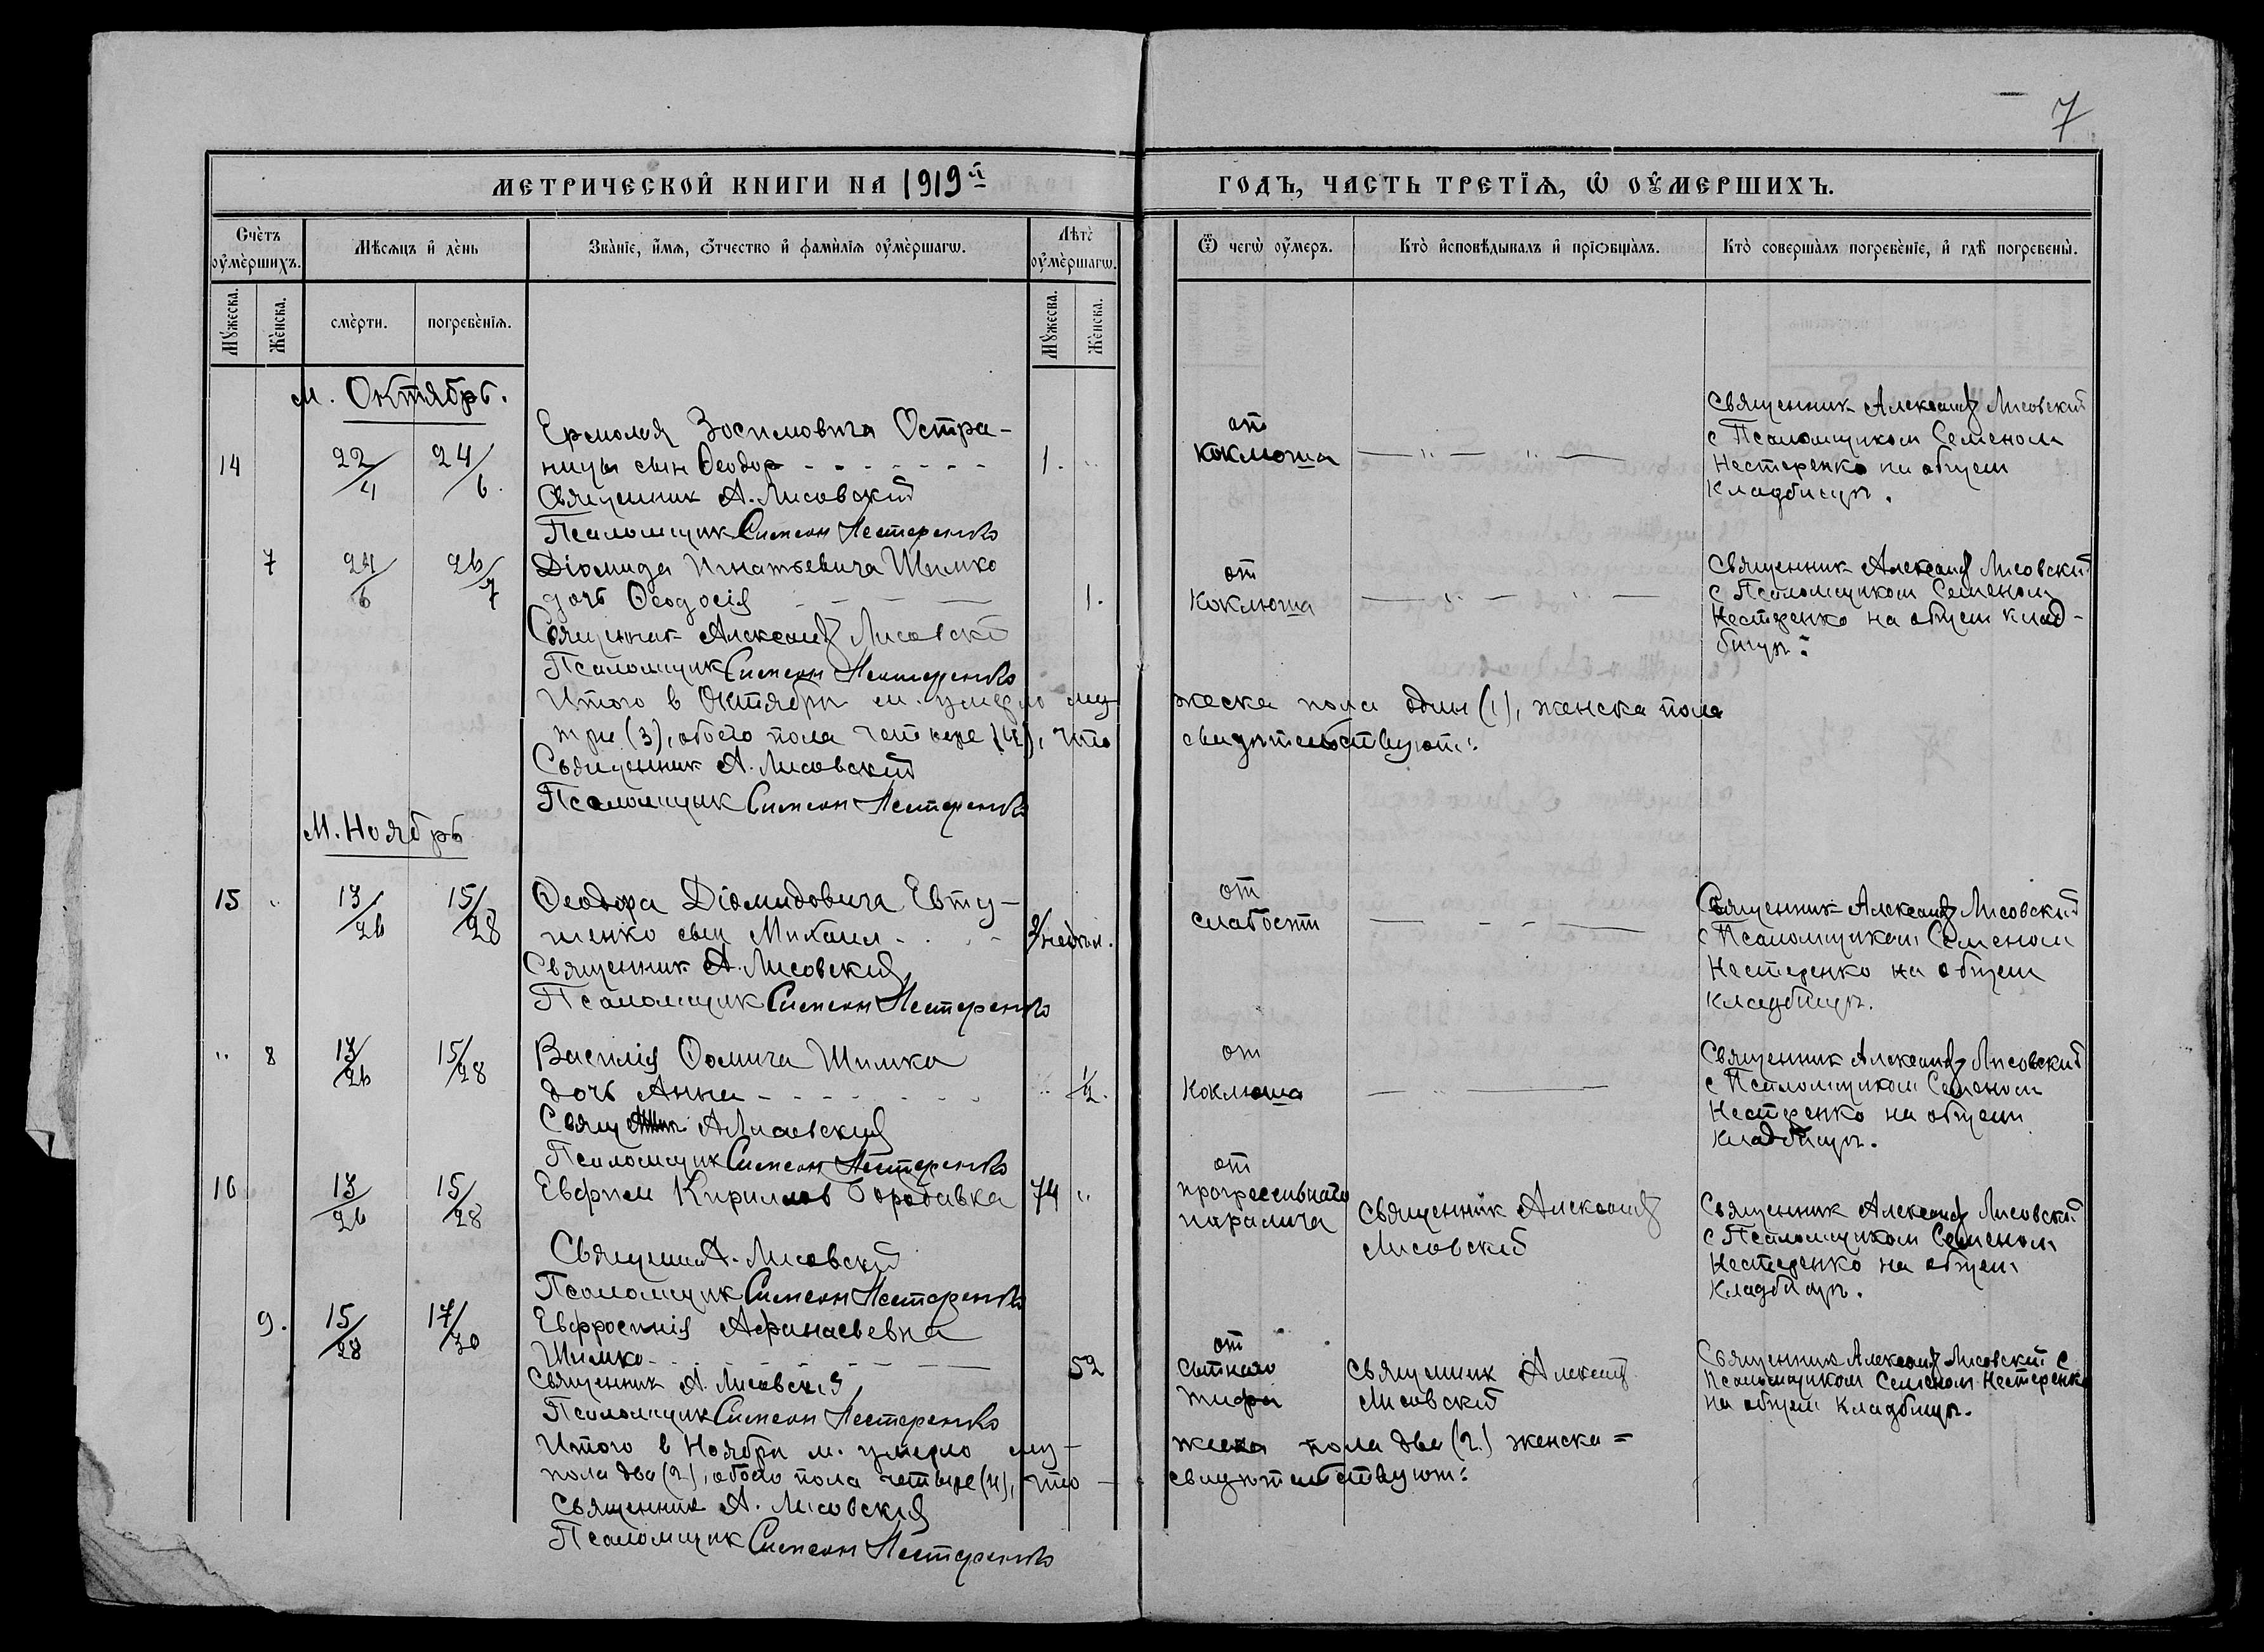 7
МЕТРИЧЕСКОЙ КНИГИ НА 1919й ГОДЪ, ЧАСТЬ ТРЕТІѦ, Ѡ ОУМЕРШИХЪ.
Счѐтъ оумѐршихъ.
Мѣсяцъ и дѐнь
Званіе, имя, отчество и фамилія оумѐршагѡ.
Лѣтѐ оумѐршагѡ.
Ѿ чегѡ оумеръ.
Кто исповѣдывалъ и пріобщалъ.
Кто совершалъ погребеніе, и гдѣ погребены.
Мужеска.
Женска.
смерти.
погребенія.
Мужеска.
Женска.
м. Октябрь.
14 22/4 24/6. Ермолая Зосимовича Остра-
ницы сын Ѳеодор - - - - - - - 1. "
Священник А. Лисовский
Псаломщик Симеон Нестеренко
от
коклюша
Священник Александр Лисовский
с Псаломщиком Семеном
Нестеренко на общем
кладбищѣ.
7 24/6 26/7 Діомида Игнатьевича Шимко
дочь Ѳеодосія 1.
Священник Александр Лисовский
Псаломщик Симеон Нестеренко
от
коклюша
Священник Александр Лисовский
с Псаломщиком Семеном
Нестеренко на общем клад-
бищѣ:
Итого в Октябрѣ м. умерло му-
жеска пола один (1), женска пола
три (3), обоего пола четыре (4), что
свидѣтельствуют:
Священник А. Лисовский
Псаломщик Симеон Нестеренко
М. Ноябрь
15 " 13/26 15/28 Ѳеодора Діомидовича Евту-
шенко сын Михаил - - 2/недѣли.
Священник А. Лисовский
Псаломщик Симеон Нестеренко
от
слабости
Священник Александр Лисовский
с Псаломщиком Семеном
Нестеренко на общем
кладбищѣ.
" 8 13/26 15/28 Василія Ѳомича Шимка
дочь Анна - - - - - - - " 1/2.
А Лисовский
Псаломщик Симеон Нестеренко
от
коклюша
Священник Александр Лисовский
с Псаломщиком Семеном
Нестеренко на общем
кладбищѣ.
16 13/26 15/28 Евфим Кириллов Бородавка 74 "
Священник А. Лисовский
Псаломщик Симеон Нестеренко
от
прогрессивнаго
паралича
Священник Александр
Лисовский
Священник Александр Лисовский
с Псаломщиком Семеном
Нестеренко на общем
кладбищѣ.
9. 15/28 17/30 Евфросинія Афанасьевна
Шимко 52
Священник А. Лисовский
Псаломщик Симеон Нестеренко
от
сыпного
тифа
Священник Александр
Лисовский
Священник Александр Лисовский с
Псаломщиком Семеном Нестеренко
на общем кладбищѣ.
Итого в Ноябрѣ м. умерло му-
жеска пола два (2) женска =
пола два (2), обоего пола четыре (4), что -
свидѣтельствуют:
Священник А. Лисовский
Псаломщик Симеон Нестеренко